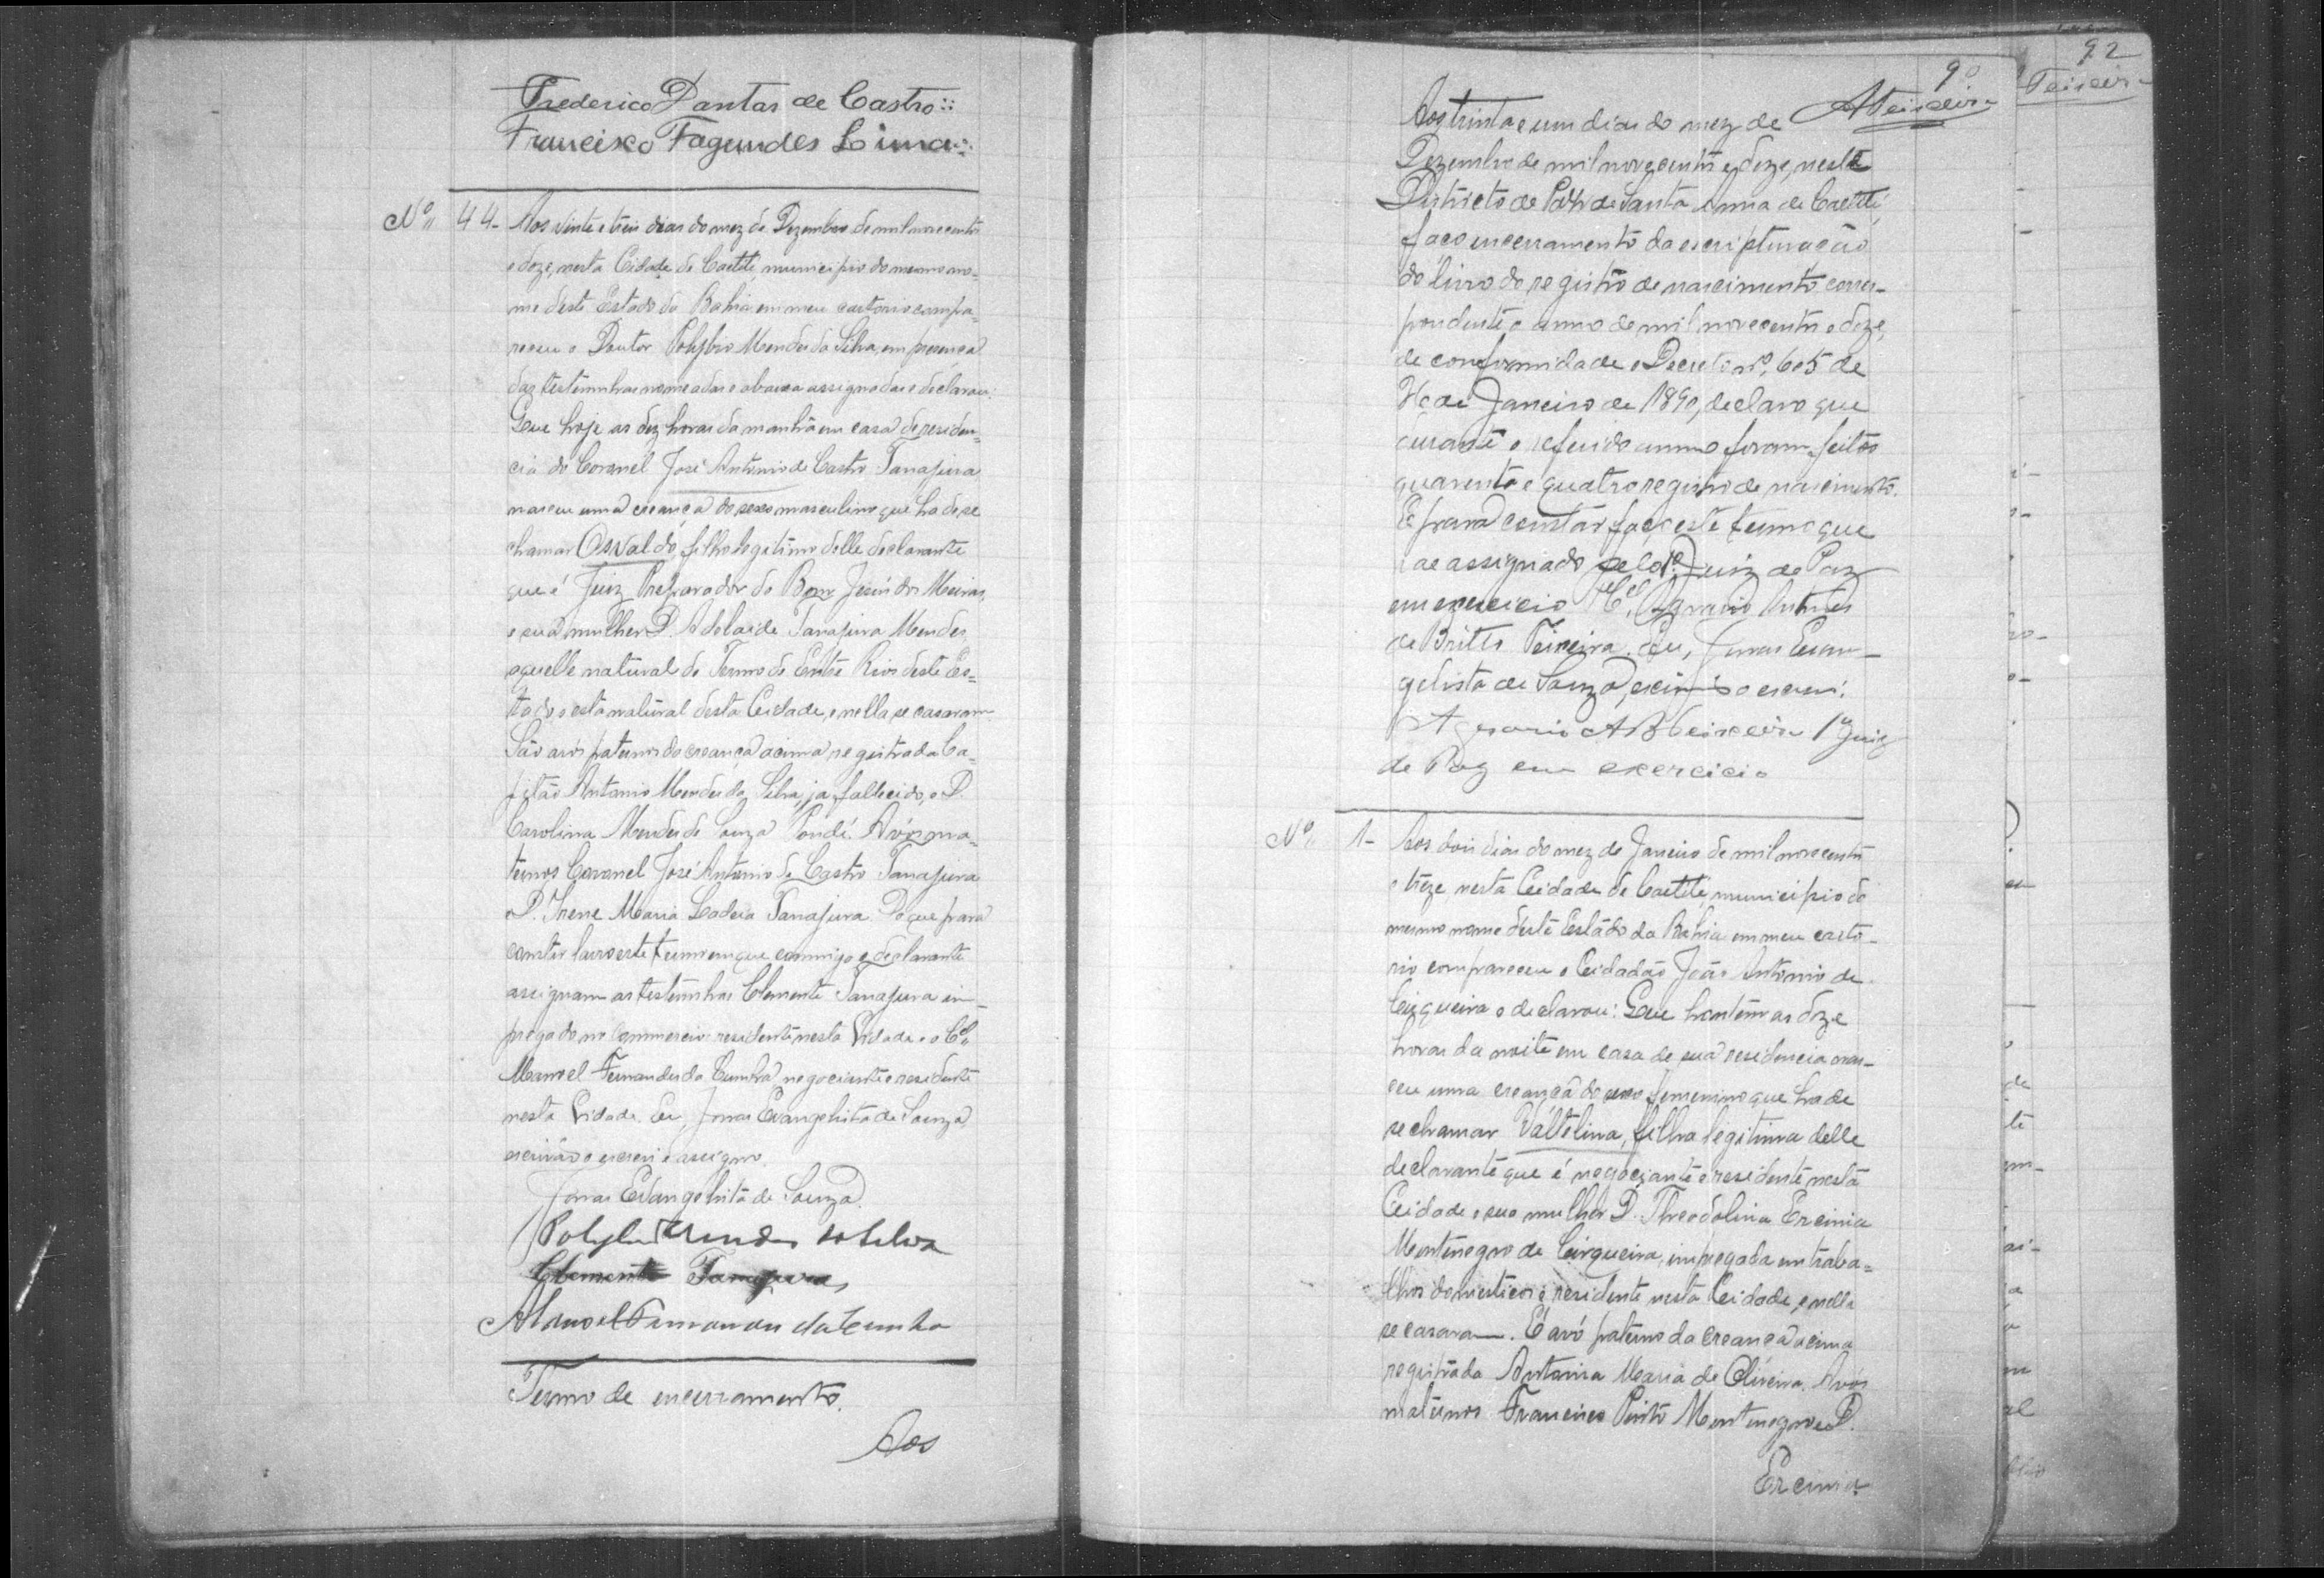 Frederico Dantas de Castro
Francisco Fagundes Lima
Nº 44- Aos vinte e treis dias do mez de Dezembro de mil novecentos
e doze, nesta Cidade de Caetité, municipio do mesmo no-
me deste Estado da Bahia em meu cartorio compa-
receu o Doutor Polybio Mendes da Silva, em presença
das testemunhas nomeadas e abaixo assignadas e declarou:
Que hoje as dez horas da manhã em casa de residen-
cia do Coronel José Antonio de Castro Tanajura
nasceu uma creança do sexo masculino que ha de se
chamar Osvaldo, filho legitimo delle declarante
que é Juiz Preparador do Bom Jesus dos Meiras,
e sua mulher D. Adelaide Tanajura Mendes,
aquelle natural do Termo de Entre Rios deste Es-
tado e esta natural desta Cidade, e nella se casaram.
São avós paternos da creança acima registrada Ca-
pitão Antonio Mendes da Silva, já fallecido, e D.
Carolina Mendes de Souza Pondé. Avós ma-
ternos Coronel José Antonio de Castro Tanajura
e D. Irene Maria Ladeia Tanajura. Do que para
constar lavro este termo em que commigo e declarante
assignam as testemunhas Clemente Tanajura im-
pregado no commercio residente nesta Cidade e o Cel.
Manoel Fernandes da Cunha negociante e residente
nesta Cidade. Eu, Jonas Evangelista de Souza
escrivão o escrevi e assigno.
Jonas Evangelista de Souza.
Polybio Mendes da Silva
Clemente Tanajura,
Manoel Fernandes da Cunha
Termo de encerramento.
Aos
90
ATeixeira
Aos trinta e um dias do mez de
Dezembro de mil novecentos e doze, neste
Districto de Paz de Santa Anna de Caetité,
faço encerramento da escripturação
do livro do registro de nascimento corres-
pondente o anno de mil novecentos e doze,
de conformidade o Decreto nº 605 de
de Janeiro de 1890, declaro que
durante o referido anno foram feitos
quarenta e quatro registro de nascimento.
E para constar faço este termo que
vae assignado pelo 1º Juiz de Paz
em exercicio Cel.
de Britto Teixeira. Eu, Jonas Evan-
gelista de Souza, escrivão o escrevi.
1º Juiz
de Paz em exercicio
Nº 1- Aos dois dias do mez de Janeiro de mil novecentos
e treze, nesta Cidade de Caetité, municipio do
mesmo nome deste Estado da Bahia em meu carto-
rio compareceu o Cidadão João Antonio de
Cirqueira e declarou: Que hontem as doze
horas da noite em casa de sua residencia nas-
ceu uma creança do sexo femenino que ha de
se chamar Valtelina, filha legitima delle
declarante que é negociante e residente nesta
Cidade e sua mulher D. Theodolina Ercinia
Montenegro de Cirqueira, impregada em traba-
lhos domesticos e residente nesta Cidade, e nella
se casaram. É avó paterno da creança acima
registrada Antonia Maria de Oliveira. Avós
maternos Francisco Pinto Montenegro e D.
Ercinia
92
Teixeira